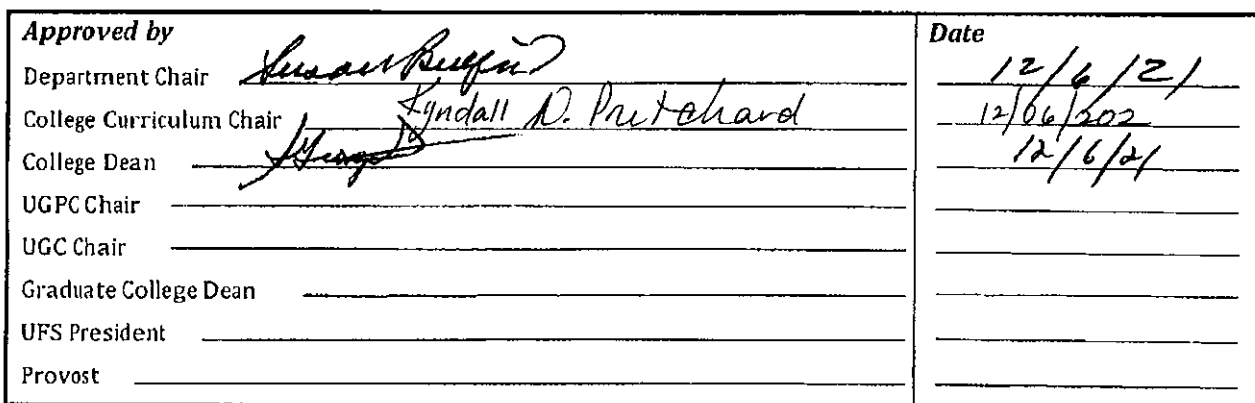 Approved by Date
Department Chair Susan 12/6/21
College Curriculum Chair Kyndall D. Pritchard 12/06/202
College Dean 12/6/21
UGPC Chair
UGC Chair
Graduate College Dean
UFS President
Provost